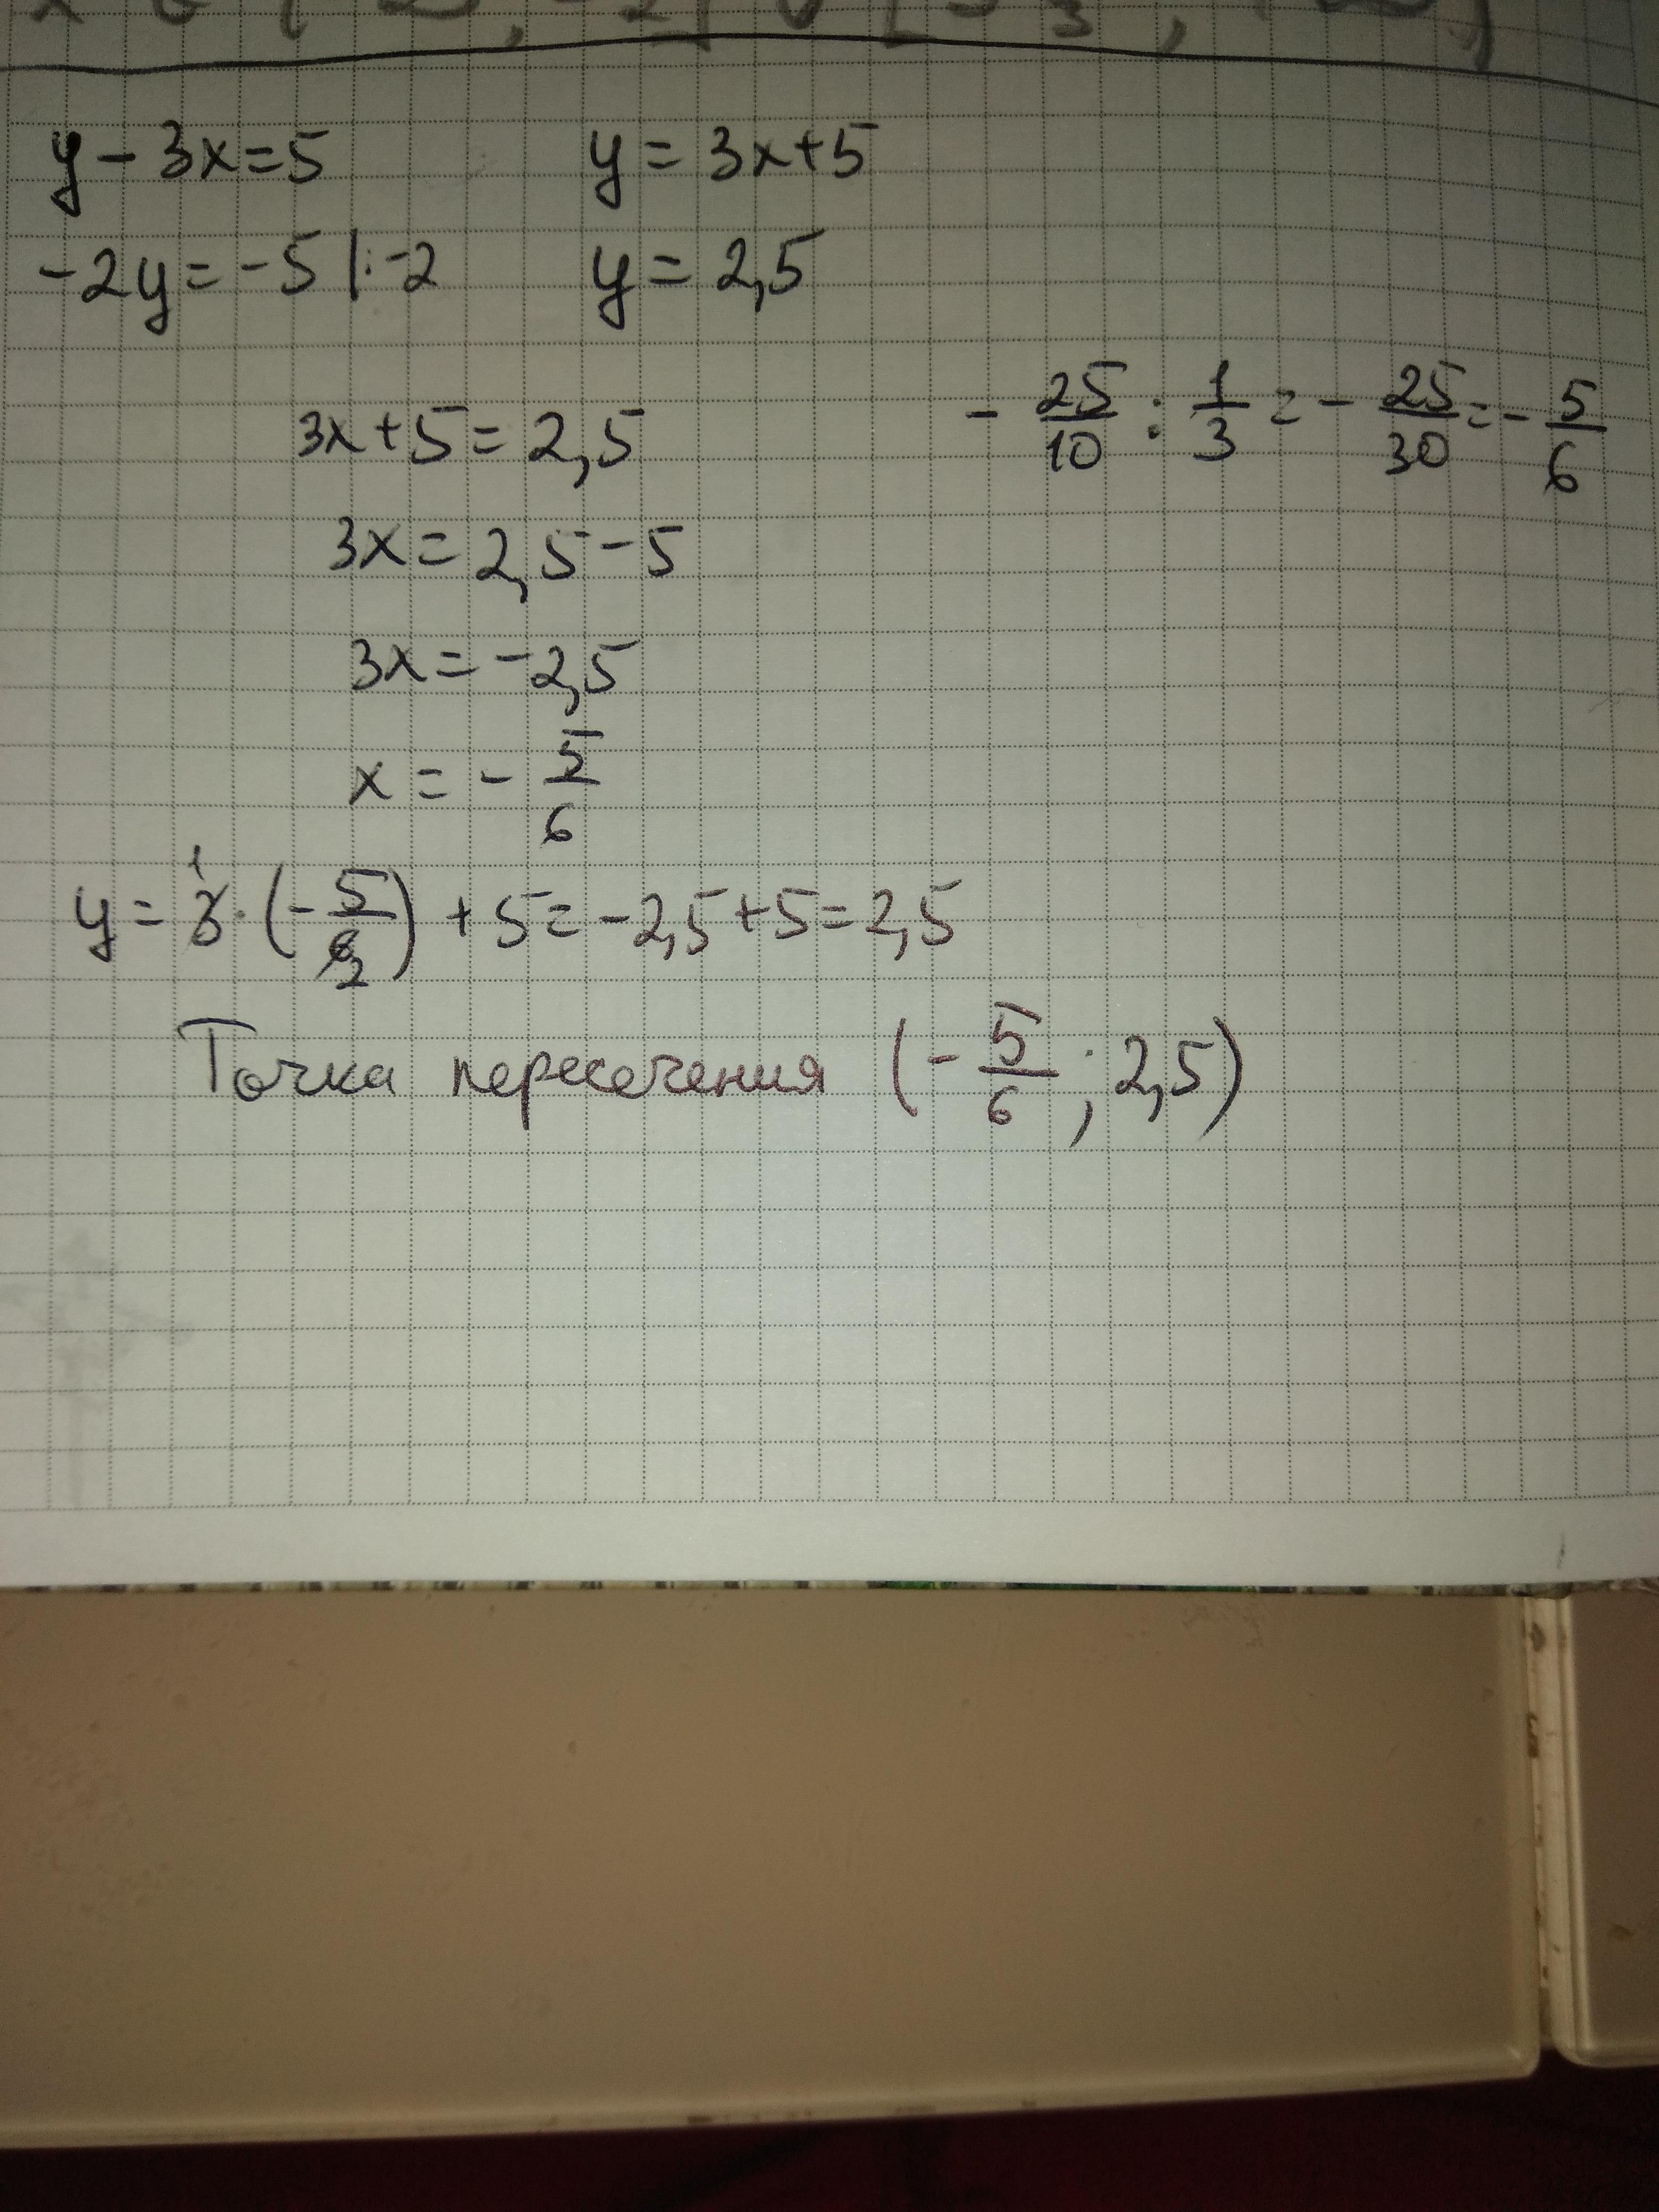 y - 3x = 5
y = 3x + 5
-2y = -5 | : -2
y = 2,5
3x + 5 = 2,5
- 25/10 : 1/3 = - 25/30 = - 5/6
3x = 2,5 - 5
3x = -2,5
x = - 5/6
y = 3 · (- 5/6) + 5 = -2,5 + 5 = 2,5
1
2
Точка пересечения (- 5/6 ; 2,5)